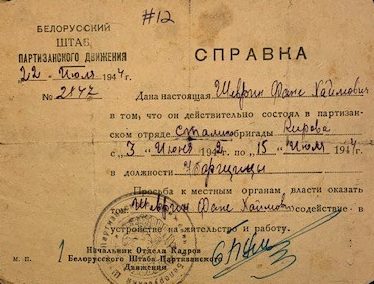 #12
БЕЛОРУССКИЙ
ШТАБ
ПАРТИЗАНСКОГО ДВИЖЕНИЯ
22 Июля 1944г.
№ 2847
СПРАВКА
Дана настоящая Шеврин Фане Хаймовне
в том, что он действительно состоял в партизан-
ском отряде Сталин бригады Кирова
с „3" Июня 1942г. по „15" Июля 1944г
в должности Уборщицы
Просьба к местным органам, власти оказать
тов. Шеврин Фане Хаймовн содействие в
устройстве на жительство и работу.
Начальник Отдела Кадров
м. п. Белорусского Штаба Партизанского
Движения